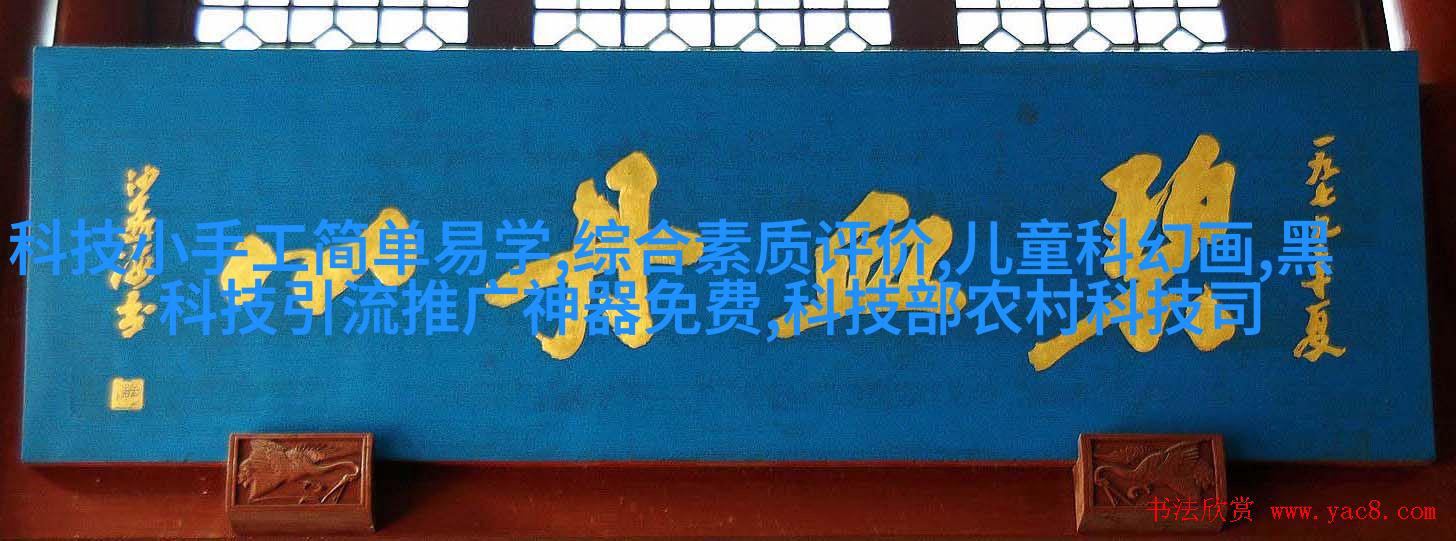 一九七九年夏
碧血丹心
沙孟海书
科技小手工简单易学,综合素质评价,儿童科幻画,黑
科技引流推广神器免费,科技部农村科技司
书法欣赏 www.yac8.com